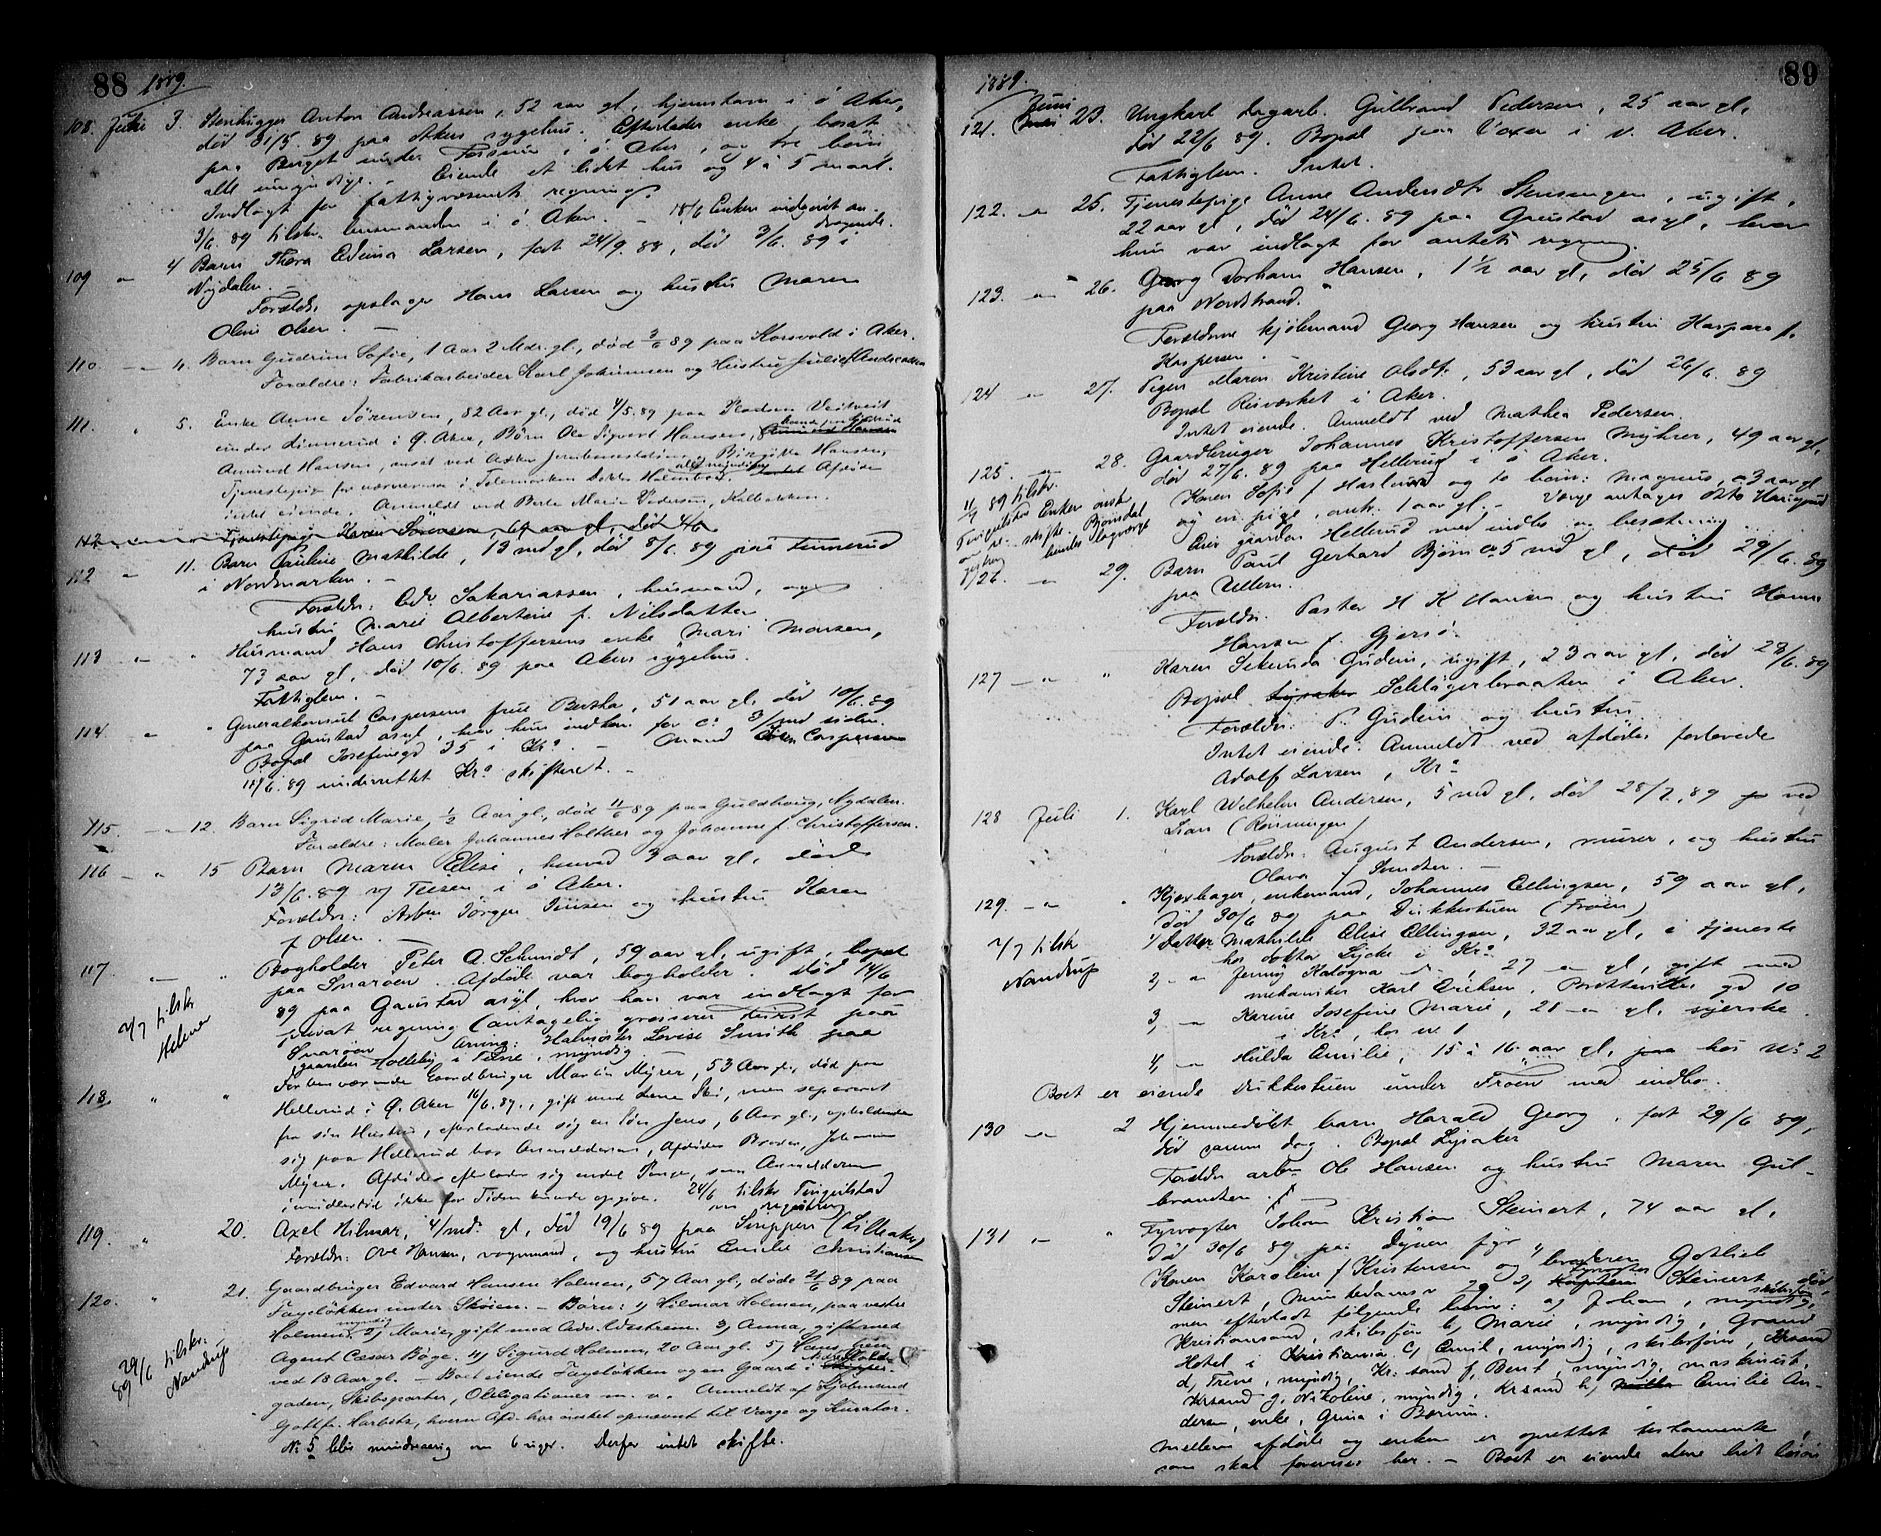 88 1889.
108. Juni 3. Stenhugger Anton Andreassen, 52 aar gl, hjemstavn i ø Aker,
død 31/5. 89 paa Akers sygehus. Efterlader enke, bosat
paa Berget under i ø. Aker, og tre børn
alle umyndige. – Eiende et lidet hus og 4 à 5 maal.
Indlagt for fattigvæsenets regning.
3/6. 89 tilskr. lensmanden i ø. Aker. – 18/6 Enken indgivet an-
dragende.
109 " 4 Barn Thora Edvina Larsen, født 24/9. 88, død 3/6. 89 i
Nydalen. –
Forældr. opslager Hans Larsen og hustru Maren
Oline Olsen. –
110. – " – 4. Barn Gudrun Sofie, 1 Aar 2 Mdr. gl., død 3/6 89 paa Korsvold i Aker.
Forældre: Fabrikarbeider Karl Johannsen og Hustru Julie f. Andreassen
111. " 5. Enke Anne Sørensen, 82 Aar gl., død 4/5. 89 paa Pladsen Veitvedt
under Linnerud i Ø. Aker, Børn Ole Sigvart Hansen,
Amund Hansen, ansat ved Asker Jernbanestation, og Birgitte Hansen,
Tjenestepige for nærværende i Telemarken Afdøde
intet eiende. Anmeldt ved Berte Marie Pedersen, Kalbakken.
112 Tjenestepige Karen Sørensen, aar gl, død 4/6
112 " 11. Barn Pauline Mathilde, 13 md gl, død 8/6. 89 paa Finnerud
i Nordmarken. –
Forældr: Edv. Sakariassen, husmand, og
hustru Marie Albertine f. Nilsdatter
113 – " – " Husmand Hans Christoffersens enke Mari Monsen,
73 aar gl, død 10/6. 89 paa Akers sygehus.
Fattiglem. –
114. " " Generalkonsul Caspersens frue Bertha, 51 aar gl, død 10/6. 89
paa Gaustad asyl, hvor hun indkom for c: 3/md siden.
Bopæl Josefinegd 35 i Kra. – Mand Caspersen
18/6. 89 underrettet Kra skifteret. –
115. – " – 12. Barn Sigrid Marie, 1/2 Aar gl., død 11/6 89 paa Guldhaug, Nydalen.
Forældre: Maler Johannes Holther og Johanne f. Christoffersen.
116 – " 15 Barn Maren Elise, henved 3 aar gl, død
13/6. 89 v/ Teisen i ø Aker.
Forældr: Arbr Jørgen Jensen og hustru Karen
f Olsen. –
117 – " Bogholder Peter A. Schmidt, 59 aar gl, ugift, bopæl
paa Snarøen. Afdøde var bogholder. død 14/6
89 paa Gaustad asyl, hvor han var indlagt for
privat regning (antagelig grosserer Furst paa
Snarøen) Arving: Halvsøster Lovise Smith paa
gaarden Holleby i Tune, myndig
2/7 tilskr
118. " " Forhenværende Gaardbruger Martin Myrer, 53 Aar gl., død paa
Hellerud i Ø. Aker 16/6. 89., gift med Lena Ski, men separeret
fra sin Hustru, efterladende sig en Søn Jens, 6 Aar gl., opholdende
sig paa Hellerud hos Anmelderen, Afdødes Broder, Johannes
Myrer. Afdøde efterlader sig endel Penge, som Anmelderen
imidlertid ikke for Tiden kunde opgive. 24/6 tilskr Tingulstad
om registrering
119. " 20. Axel Hilmar, 4/md. gl, død 19/6 89 paa Snippen (Lilleaker)
Forældr: Ove Hansen, vognmand, og hustru Emilie Christiansen
120. " 21. Gaardbruger Edvard Hansen Holmen, 57 Aar gl., døde 21/6 89 paa
Fageløkken under Skøien. – Børn: 1) Hilmar Holmen, paa vestre
Holmen, myndig 2) Marie, gift med Adv. Edestrem. 3) Anna, gift med
Agent Cæsar Bøge. 4) Sigurd Holmen, 20 Aar gl. 5) Hans
ved 18 Aar gl. – Boet eiende Fageløkken og en Gaard i
gaden, Skibsparter, Obligationer m. v. Anmeldt af
Gottfr. Harbitz, hvem Afd. har ønsket opnævnt til Værge og Kurator.
No 5 blir mindreaarig om 6 uger. Derfor intet skifte.
29/6 89 tilskr. Nandrup
1889. 89
121. Juni 23. Ungkarl Dagarb. Gulbrand Pedersen, 25 aar gl,
død 22/6 89. Bopæl paa Voxen i v. Aker.
Fattiglem. Intet.
122. – " 25. Tjenestepige Anne Andersdtr Stensengen, ugift,
22 aar gl, død 24/6. 89 paa Gaustad asyl, hvor
hun var indlagt for amtets regning.
123. – " 26. Georg Hansen, 1 1/2 aar gl, død 25/6 89
paa Nordstrand.
Forældrene kjøbmand Georg Hansen og hustru f.
Kaspersen.
124 – " 27. Pigen Maren Kristine Olsdtr, 53 aar gl, død 26/6. 89
Bopæl Risværket i Aker.
Intet eiende. Anmeldt ved Mathea Pedersen.
125. – " 28. Gaardbruger Johannes Kristoffersen Myhrer, 49 aar gl,
død 27/6. 89 paa Hellerud i ø Aker.
Karen Sofie f Haslerud og to børn: Magnus, 3 aar gl
og en pige, omtr. 1 aar gl. – Værge antages Otto
Eier gaarden Hellerud med indbo og besætning.
126. – " 29. Barn Paul Gerhard Bjørn, 5 md gl, død 29/6. 89
paa Ullern.
Forældr. Pastor H K Hansen og hustru Hanna
Hansen f. Gjersø.
127 – " – " Karen Sekunda Gudeim, ugift, 23 aar gl, død 28/6. 89
Bopæl Lysaker Schlägerbraaten i Aker.
Forældr: P. Gudeim og hustru
Intet eiende. Anmeldt ved afdødes forlovede
Adolf Larsen, Kra
128 Juli 1. Karl Wilhelm Andersen, 5 md gl, død 28/7. 89 ved
Lian (Rønningen)
Forældr: August Andersen, murer, og hustru
Olava f Svendsen. –
129. – " " enkemand, Johannes Ellingsen, 59 aar gl,
død 30/6 89 paa Dukkestuen (Frøen)
2/7 tilskr Nandrup
1/ Datter Mathilde Elise Ellingsen, 32 aar gl, i tjeneste
hos doktor Lycke i Kra
2, – " Jenny Kalogna – " –, 27 – " gl, gift med
mekaniker Karl Eriksen, gd 10
3, – " Karine Josefine Marie, 21 – " gl, syerske
i Kra, hos no 1
4, – " Hulda Emilie, 15 à 16 aar gl, paa hos No 2
Boet er eiende Dukkestuen under Frøen med indbo.
130 – " 2 Hjemmedøbt barn Harald Georg, født 29/6 89,
død samme dag. Bopæl Lysaker
Forældr arbr Ole Hansen og hustru Maren Gul-
brandsen. –
131 – " Fyrvogter Johan Kristian Steinert, 74 aar gl,
død 30/6 89 paa Dynen fyr
Karen Karoline f Kristensen og broderen Gotlieb
Steinert, Munkedamsv 29 Fyrvogter Steinert, død,
men efterladt følgende børn: a) Johan, myndig,
Kristianssand, skibsfør b) Marie, myndig, Grand
Hotel i Kristiania c) Emil, myndig, skibsfører, Krsand
d, Trine, myndig, Kr: sand f, Bent, myndig, maskinist,
Krsand g, Nikoline, myndig, Krsand h, Emilie An-
dersen, enke, Grina i Bærum.
Mellem afdøde og enken er oprettet testamente,
som skal forevises her. – Boet er eiende alene lidt løsøre